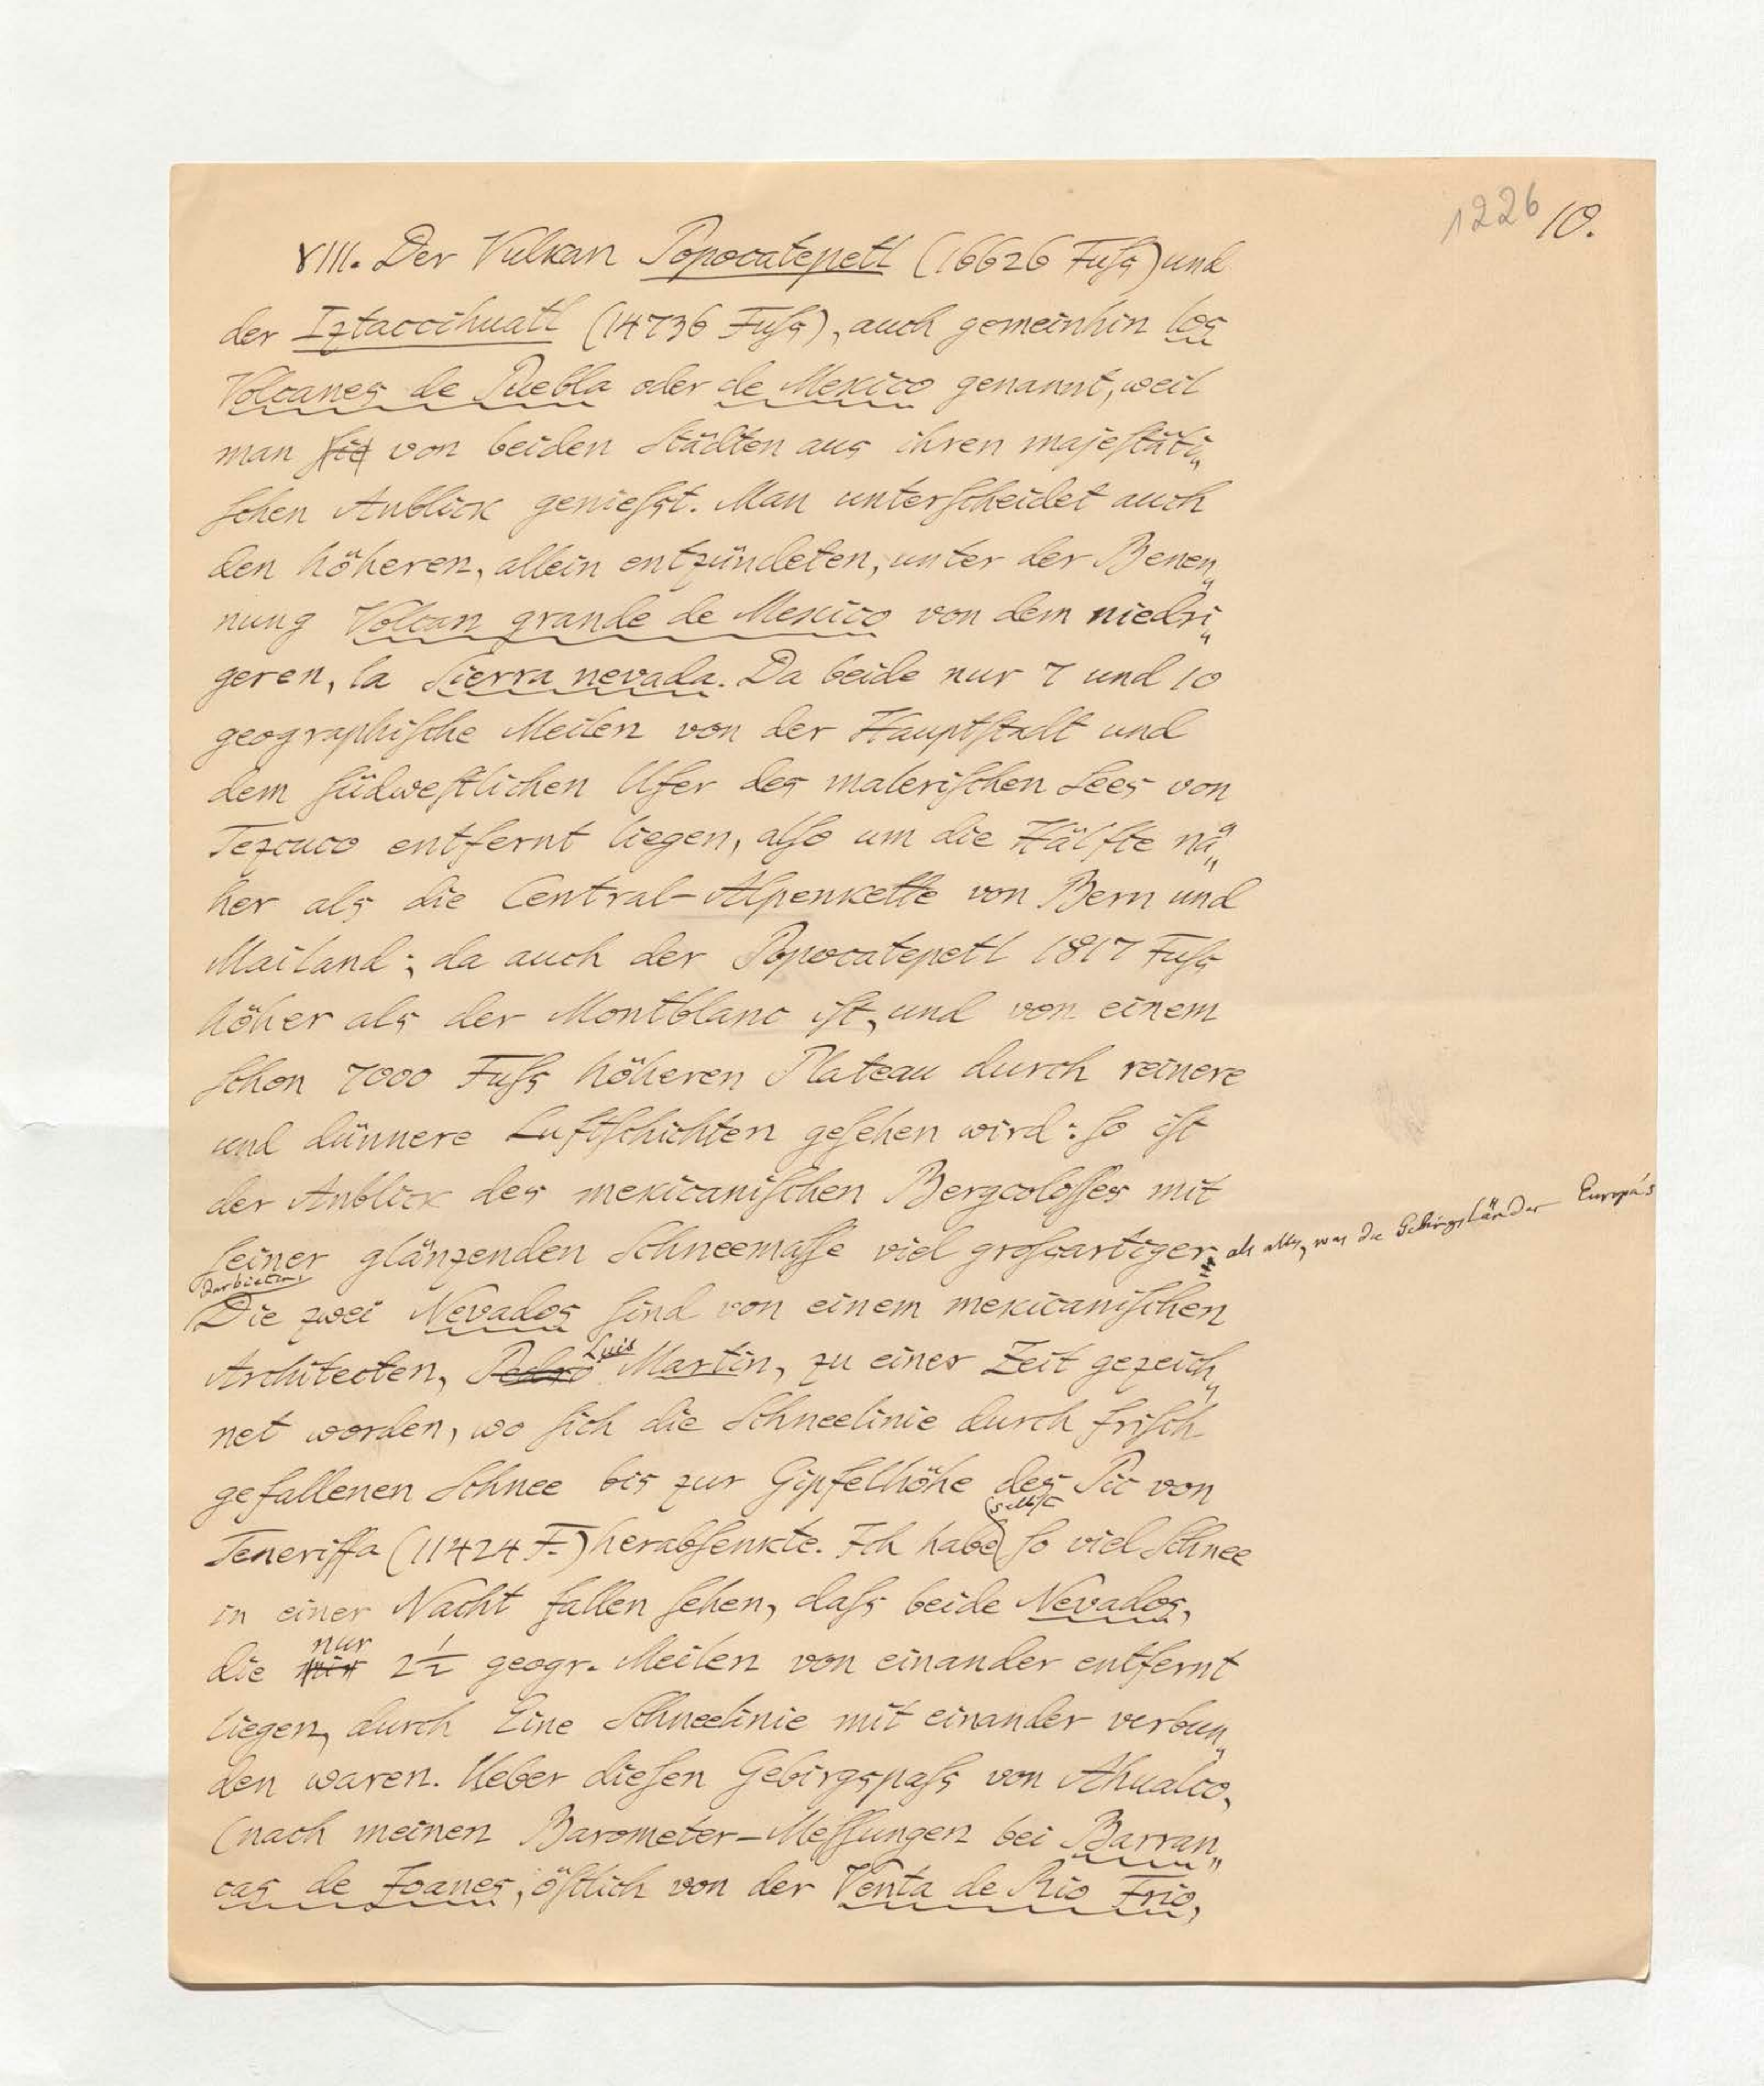 1226 10.
VIII. Der Vulkan Popocatepetl (16626 Fuſs) und
der Iztaccihuatl (14736 Fuſs), auch gemeinhin los
Volcanes de Puebla oder de Mexico genannt, weil
man ſie von beiden Städten aus ihren majeſtäti„
ſchen Anblick genieſst. Man unterſcheidet auch
den höheren, allein entzündeten, unter der Benen„
nung Volcan grande de Mexico von dem niedri„
geren, la Sierra nevada. Da beide nur 7 und 10
geographiſche Meilen von der Hauptſtadt und
dem ſüdweſtlichen Ufer des maleriſchen Sees von
Tezcuco entfernt liegen, alſo um die Hälfte nä„
her als die Central-Alpenkette von Bern und
Mailand; da auch der Popocatepetl 1817 Fuſs
höher als der Montblanc iſt, und von einem
ſchon 7000 Fuſs höheren Plateau durch reinere
und dünnere Luftſchichten geſehen wird: ſo iſt
der Anblick des mexicaniſchen Bergcoloſſes mit
ſeiner glänzenden Schneemaſſe viel groſsartiger als alles, was die Gebirgsländer Europa's
darbieten.
Die zwei Nevados ſind von einem mexicaniſchen
Luis
Architecten, Pedro Martin, zu einer Zeit gezeich„
net worden, wo ſich die Schneelinie durch friſch
gefallenen Schnee bis zur Gipfelhöhe des Pic von
selbst
Teneriffa (11424 F.) herabſenkte. Ich habe ſo viel Schnee
in einer Nacht fallen ſehen, daſs beide Nevados,
nur
die 2½ geogr. Meilen von einander entfernt
liegen, durch Eine Schneelinie mit einander verbun„
den waren. Ueber dieſen Gebirgspaſs von Ahualco,
(nach meinen Barometer-Meſſungen bei Barran„
cas de Joanes, öſtlich von der Venta de Rio Frio,